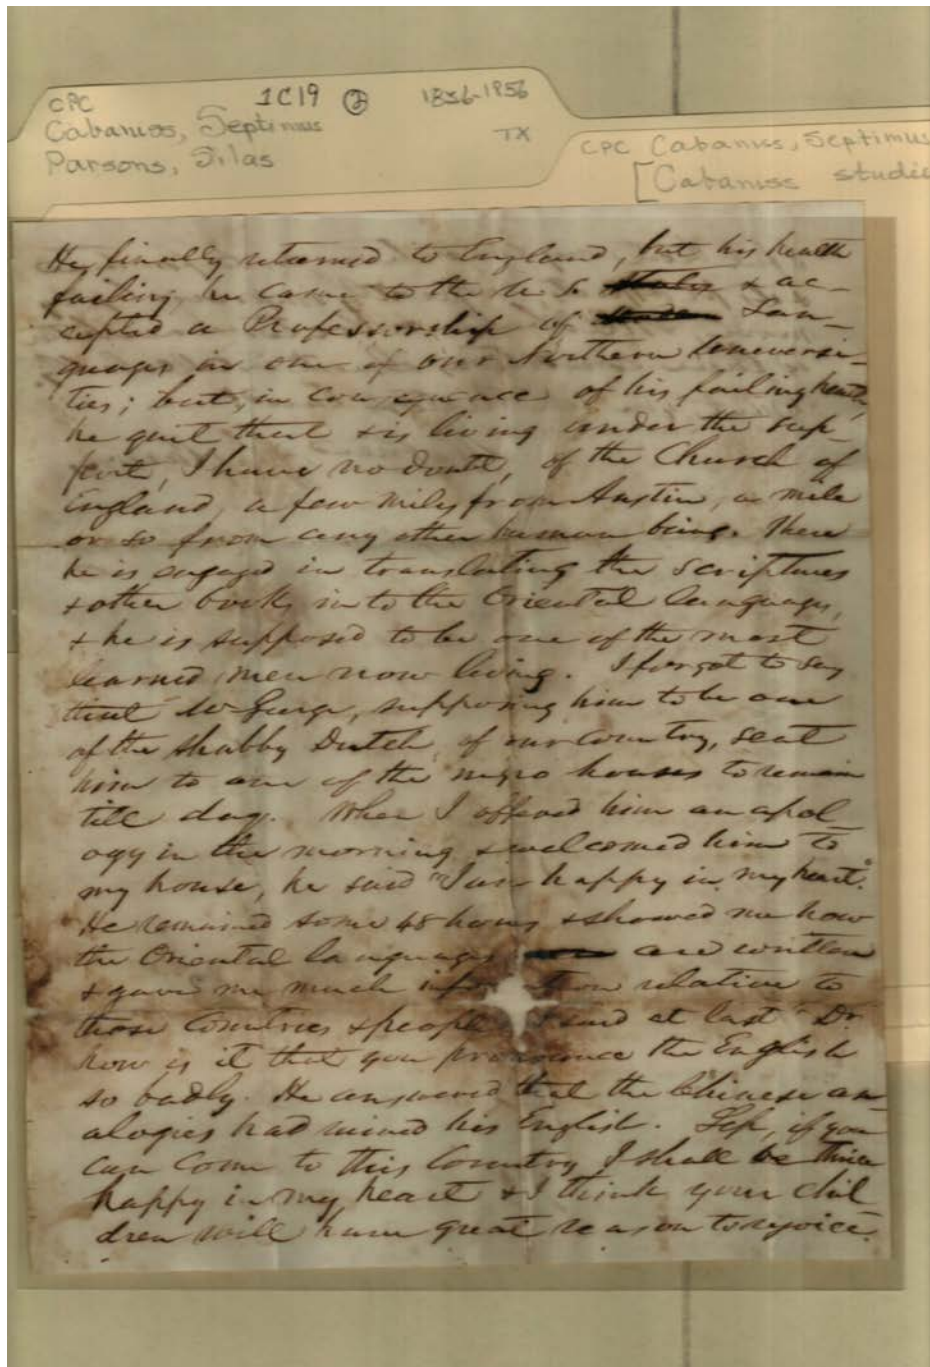 CPC 1C19 ② 1856-1856
Cabaniss, Septimus TX
Parsons, Silas
CPC Cabaniss, Septimus
[Cabaniss studie
He finally returned to England, but his health
failing he came to the U.S. & ac-
cepted a Professorship of Lan-
guages in one of our Northern Universi-
ties; but, in consequence of his failing health,
he quit that & is living under the sup-
port, I have no doubt, of the Church of
England, a few miles from Austin, a mile
or so from any other human being. There
he is engaged in translating the scriptures
& other books into the Oriental languages,
& he is supposed to be one of the most
learned men now living. I forgot to say
that supposing him to be one
of the shabby Dutch of our Country, sent
him to one of the negro houses to remain
till day. When I offered him an apol-
ogy in the morning & welcomed him to
my house, he said "I am happy in my heart."
He remained some 48 hours & showed me how
the Oriental languages are written
& gave me much information relative to
those Countries & people. I said at last "Dr.
how is it that you pronounce the English
so badly. He answered that the Chinese an-
alogies had ruined his English. Sep, if you
can come to this Country I shall be thrice
happy in my heart & I think your chil-
dren will have great reason to rejoice.